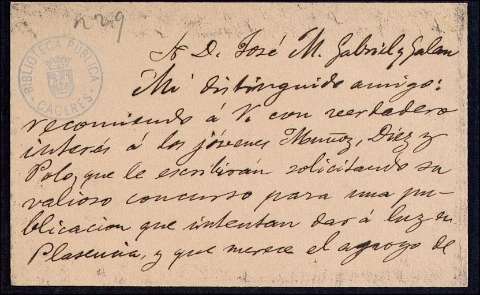 n 29
BIBLIOTECA PUBLICA
CACERES
A D. José M. Gabriel y Galan
Mi distinguido amigo:
recomiendo á V. con verdadero
interés á los jóvenes Muñoz, Diez y
Polo, que le escribirán solicitando su
valioso concurso para una pu-
blicacion que intentan dar á luz en
Plasencia, y que merece el apoyo de